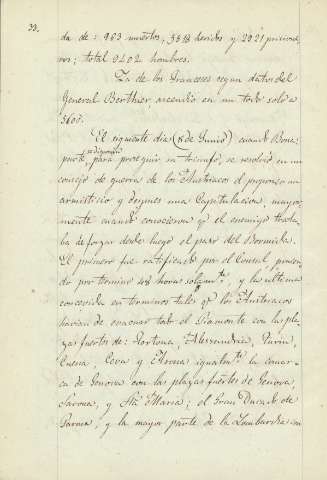 32.
da de: 963 muertos, 5518 heridos y 2921 prisione-
ros; total 9402 hombres.
La de los Franceses segun datos del
General Berthier, ascendio en un todo solo a
3600.
El siguiente dia (15 de Junio) cuando Bona-
parte, se disponia para proseguir su triunfo, se resolvió en un
consejo de guerra de los Austriacos el proponer un
armisticio y despues una Capitulacion, mayor-
mente cuando conocieron qe. el enemigo trata-
ba de forzar desde luego el paso del Bormida.
El primero fue ratificado por el Consul ponien-
do por termino 48 horas solamte., y la ultima
concevida en terminos tales qe. los Austriacos
havian de evacuar todo el Piamonte con las pla-
zas fuertes de: Tortona, Alessandria, Turin,
Cuena, Ceva y Arona igualmte. la comar-
ca de Genova con las plazas fuertes de Genova,
Savona, y Sta. Maria; el Gran Ducado de
Parma, y la mayor parte de la Lombardia con